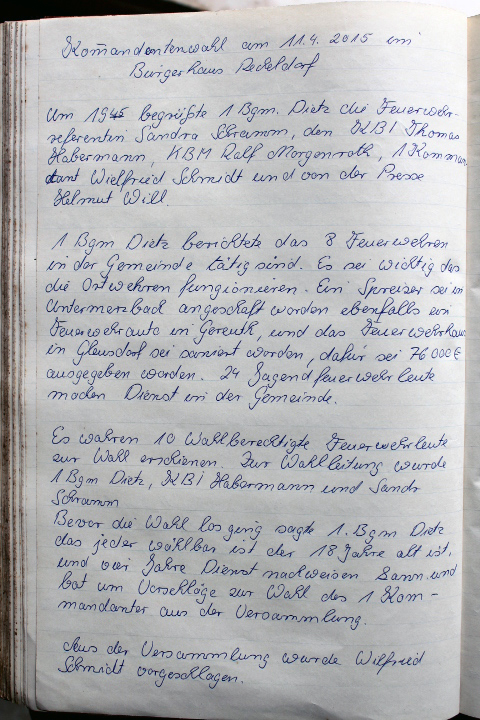 Kom̄andantenwahl am 11.4.2015 im
Bürgerhaus Reckeldorf
Um 19 45 begrüßte 1 Bgm. Dietz die Feuerwehr-
referentin Sandra Schramm, den KBI Thomas
Habermann, KBM Ralf Morgenroth, 1 Komman
dant Wielfried Schmidt und von der Presse
Helmut Will.
1 Bgm Dietz berichtete das 8 Feuerwehren
in der Gemeinde tätig sind. Es sei wichtig das
die Ortwehren fungionieren. Ein Spreizer sei in
Untermerzbach angeschaft worden ebenfalls ein
Feuerwehrauto in Gereuth, und das Feuerwehrhaus
in Gleusdorf sei saniert worden, dafür sei 76 000 €
ausgegeben worden. 24 Jugendfeuerwehrleute
machen Dienst in der Gemeinde.
Es wahren 10 Wahlberechtigte Feuerwehrleute
zur Wahl erschienen. Zur Wahlleitung wurde
1 Bgm Dietz, KBI Habermann und Sandr
Schramm
Bevor die Wahl los ging sagte 1. Bgm Dietz
das jeder wählbar ist der 18 Jahre alt ist,
und vier Jahre Dienst nachweisen kann. und
bat um Vorschläge zur Wahl des 1 Kom-
mandanten aus der Versammlung.
Aus der Versammlung wurde Wilfried
Schmidt vorgeschlagen.